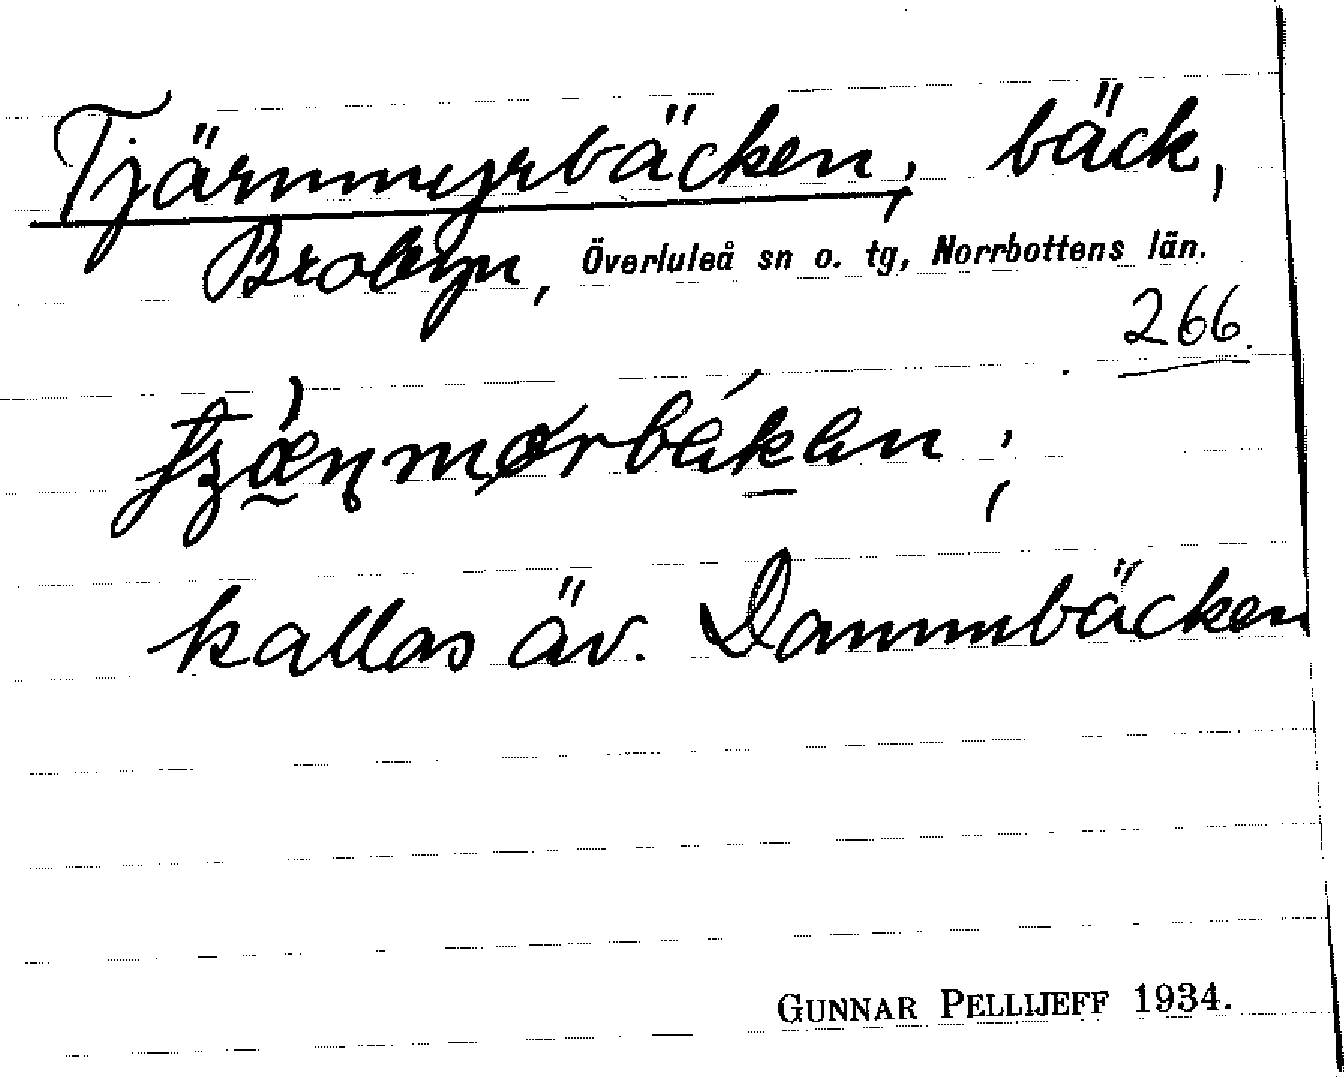 Tjärnmyrbäcken, bäck,
Brobyn, Överluleå sn o. tg, Norrbottens län.
266.
kallas äv. Dammbäcken
GUNNAR PELLIJEFF 1934.